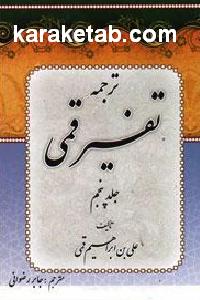 karaketab.com
ترجمه
تفسیر قمی
جلد پنجم
تألیف
علی بن ابراهیم قمی
مترجم : جابر رضوانی